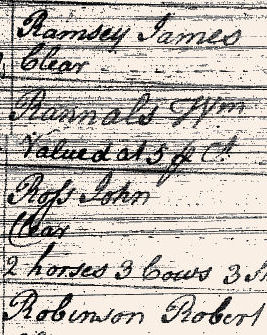 Ramsey James
Clear
Rannals Wm
Valued at 5
Ross John
Clear
2 horses 3 Cows 3
Robinson Robert